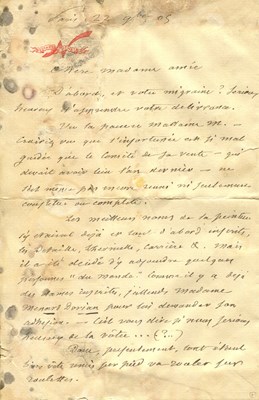 Paris 27 9bre 05
Chère madame amie
D'abord, et votre migraine? Serions
heureux d'apprendre votre délivrance.
Vu la pauvre madame M. —
que l'infortunée est si mal
guidée que le Comité de sa vente — qui
devait avoir lieu l'an dernier — ne
s'est même pas encore réuni ni seulement
constitué au complet.
Les meilleurs noms de la peinture
s'y étaient déjà en tant d'abord inscrits,
Detaille, Lhermitte, Carrière &. Mais
il a été décidé d'y adjoindre quelques
personnes "du monde". Comme il y a déjà
des Dames inscrites, j'attends madame
Menard Dorian pour lui demander son
adhésion. — C'est vous dire si nous serions
de la vôtre ... (?...)
Donc, présentement, tout ideal
mis pied va rouler sur
roulettes.